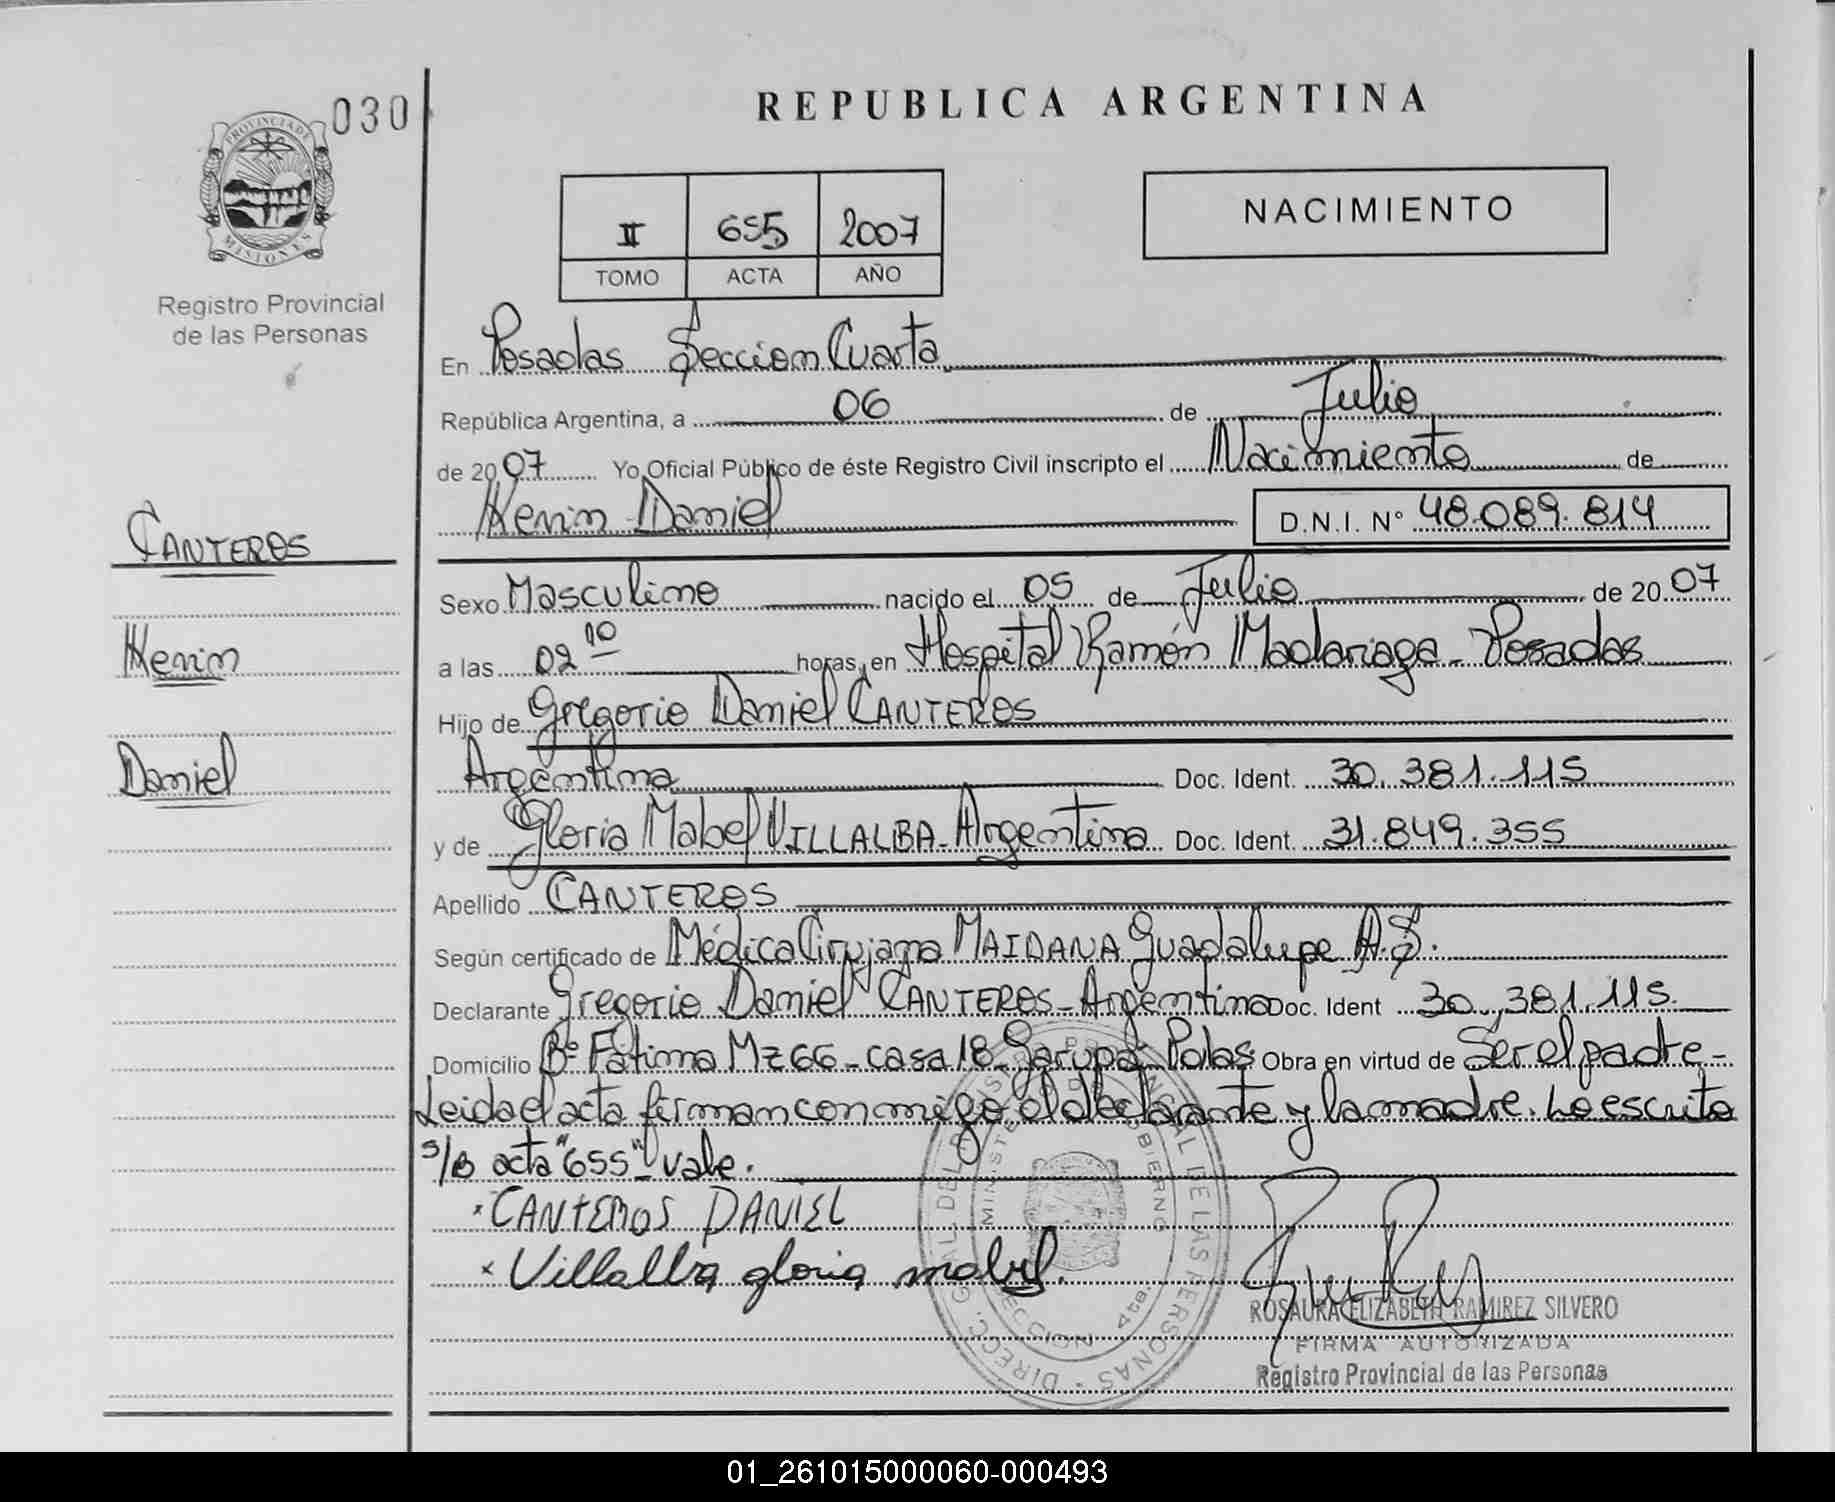 030
REPUBLICA ARGENTINA
PROVINCIA DE
MISIONES
Registro Provincial
de las Personas
II 655 2007
TOMO ACTA AÑO
NACIMIENTO
En Posadas Seccion Cuarta
República Argentina, a 06 de Julio
de 2007 Yo Oficial Público de éste Registro Civil inscripto el Nacimiento de
Kevin Daniel D.N.I. Nº 48.089.814
CANTEROS
Kevin
Daniel
Sexo Masculino nacido el 05 de Julio de 2007
a las 02 10 horas, en Hospital Ramón Madariaga - Posadas
Hijo de Gregorio Daniel CANTEROS
Argentina Doc. Ident. 30.381.115
y de Gloria Mabel VILLALBA - Argentina Doc. Ident. 31.849.355
Apellido CANTEROS
Según certificado de Médica Cirujana MAIDANA Guadalupe A.S.
Declarante Gregorio Daniel CANTEROS - Argentino Doc. Ident 30.381.115.
Domicilio Bº Fátima Mz 66 - casa 18 - Garupá - Pdas Obra en virtud de Ser el padre -
Leida el acta firman conmigo el declarante y la madre. Lo escrito
s/B acta "655" vale.
x CANTEROS DANIEL
x Villalba gloria mabel.
DIRECC. GRAL DEL REGISTRO PROVINCIAL DE LAS PERSONAS
MINISTERIO DE GOBIERNO
SECCION 4ta.
ROSAURA ELIZABETH RAMIREZ SILVERO
FIRMA AUTORIZADA
Registro Provincial de las Personas
01_261015000060-000493